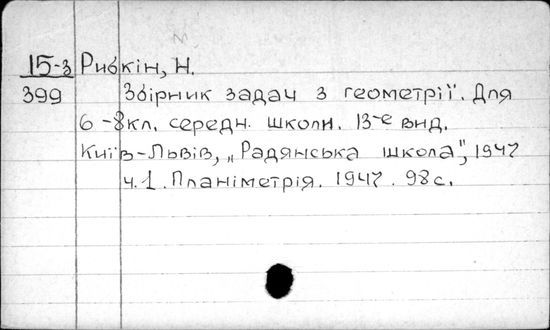 15-з Рибкін, Н.
399 Збірник задач з геометрії. Для
6-8кл. середн. школи. 13-е вид.
Київ-Львів, „Радянська школа", 1947
ч.1. Планіметрія. 1947. 98с.